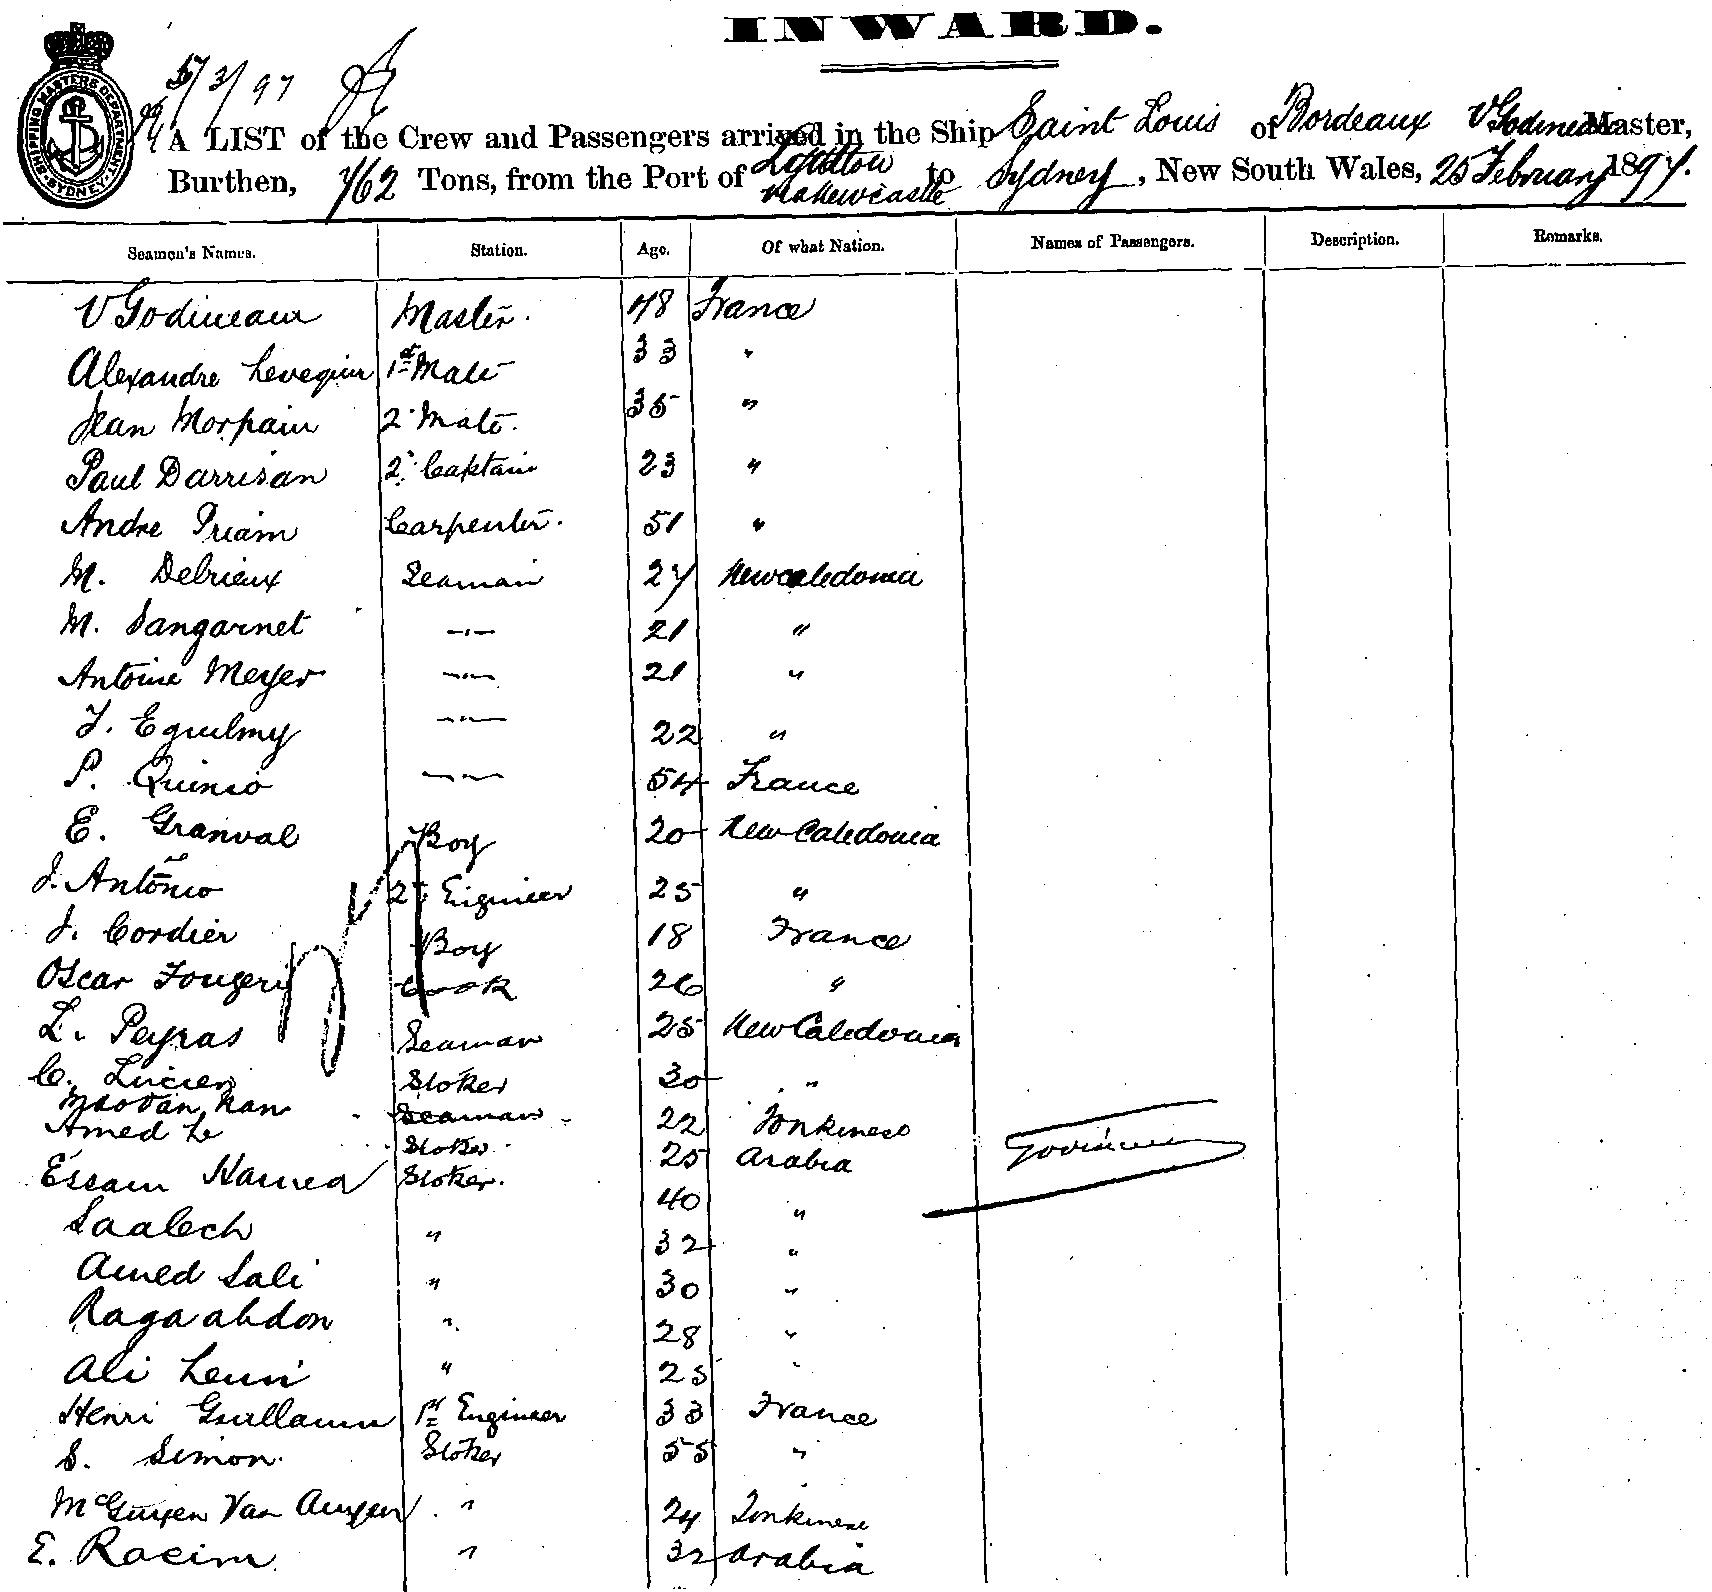 INWARD.
SHIPPING MASTERS DEPARTMENT SYDNEY
5/3/97
A LIST of the Crew and Passengers arrived in the Ship Saint Louis of Bordeaux V Godineau Master,
Burthen, 762 Tons, from the Port of via Newcastle to Sydney, New South Wales, 25 February 1897.
Seamen's Names. Station. Age. Of what Nation. Names of Passengers. Description. Remarks.
V Godineau Master. 48 France
Alexandre Levequin 1st Mate 33 "
Jean Morpain 2d Mate. 35 "
Paul Darrisan 2d Captain 23 "
Andre Priam Carpenter. 51 "
M. Delrieux Seaman 27 New Caledonia
M. Sangarnet —"— 21 "
Antoine Meyer —"— 21 "
J. Eguilmy —"— 22 "
P. Quinio —"— 54 France
E. Granval Boy 20 New Caledonia
J. Antonio 2d Engineer 25 "
J. Cordier Boy 18 France
Oscar Fougeri Cook 26 "
L. Peyras Seaman 25 New Caledonia
C. Lucien Stoker 30 "
Van Nan Seaman 22 Tonkinese
Amed Le Stoker 25 Arabia
Essam Hamed Stoker. 40 "
Saalech " 32 "
Amed Sali " 30 "
Raga abdon " 28 "
Ali Lenni " 25 "
Henri Guillaume 1st Engineer 33 France
S. Simon Stoker 55 "
McGuyen Van Auyen " 24 Tonkinese
E. Racim " 32 Arabia
Godineau